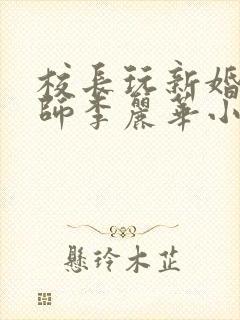 校長玩新婚
師李麗華小
懸玲木芷